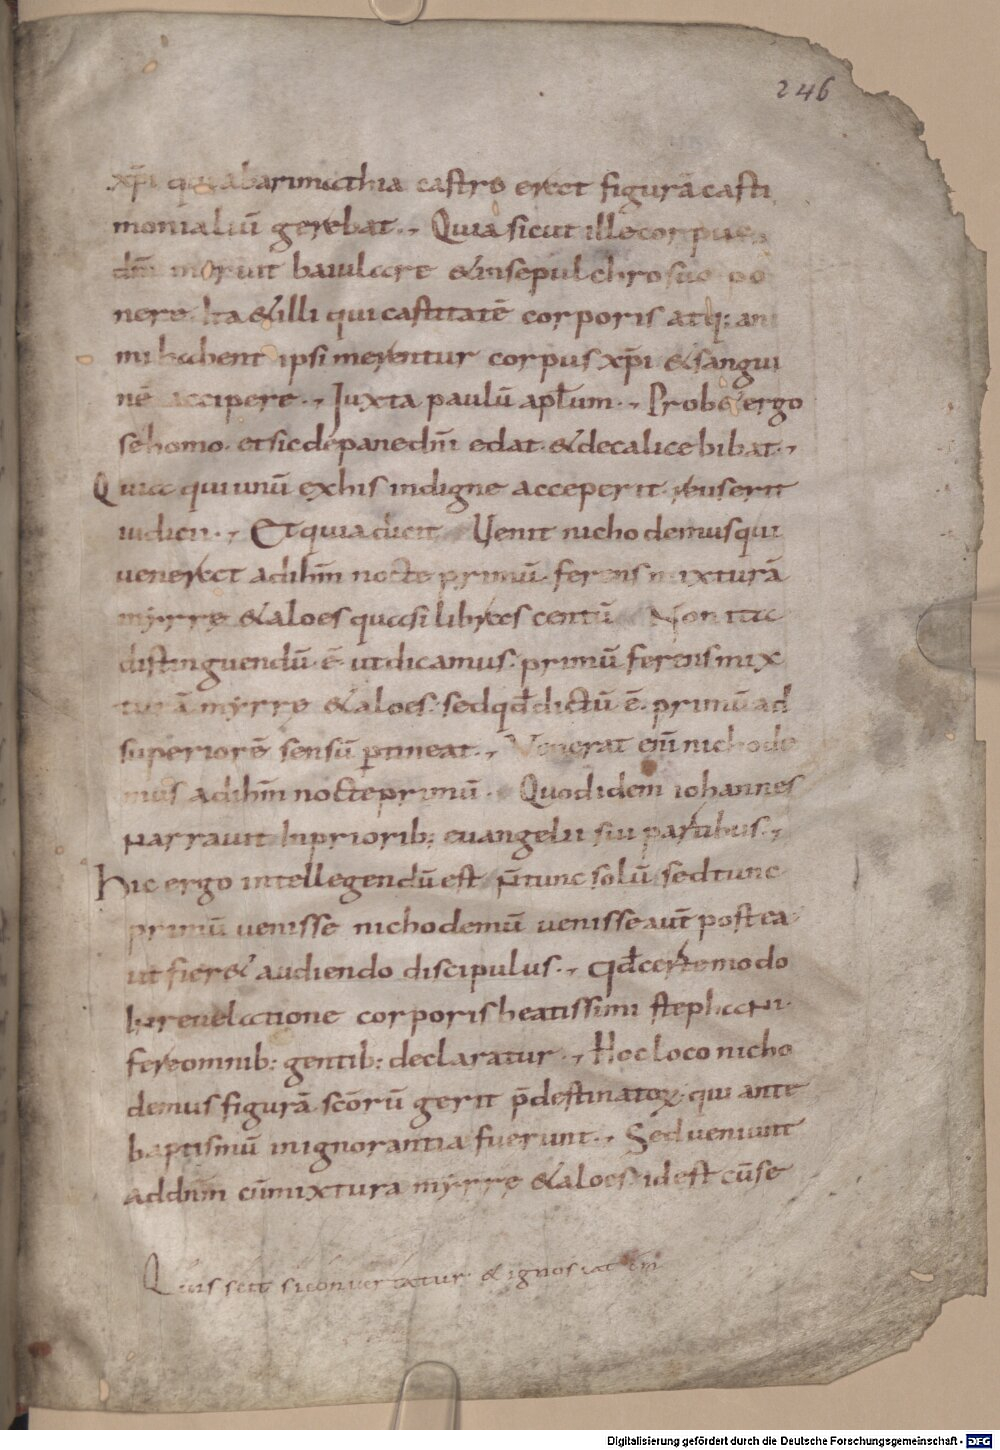 246
xp̄i qui abarimathia castro erat figurā casti
monialiū gerebat., Quia sicut ille corpus
dn̄i meruit baiulare & insepulchro suo po
nere. Ita & illi qui castitatē corporis atq; ani
mi habent ipsi merentur corpus xp̄i & sangui
nē accipere., Juxta paulū apl̄um., Prob& ergo
se homo. et sic depane dn̄i edat. & decalice bibat.,
Quia qui unū exhis indigne acceperit reus erit
iudicii., Et quia dicit Uenit nichodemus qui
venerat adihm̄ nocte primū. ferens mixturā
myrrę & aloes quasi libras centū Non ita
distinguendū ē. ut dicamus. primū ferens mix
turā myrrę & aloes. sed qd̄ dictū ē. primū ad
superiorē sensū ptineat., Venerat eni̅ nichode
mus adihm̄ nocte primū. Quod idem iohannes
narrauit In priorib; euangelii sui partibus.,
Hic ergo intellegendū est n̄ tunc solū sed tunc
primū uenisse nichodemū uenisse aut̄ postea
ut fier& audiendo discipulus., qd̄ certe modo
In reuelatione corporis beatissimi stephani.
fere omnib; gentib; declaratur., Hoc loco nicho
demus figurā scōrū gerit p̄destinatoꝝ. qui ante
baptismū in ignorantia fuerunt., Sed ueniunt
addn̄m cū mixtura myrrę & aloes. id est cū se
Quis scit si conuertatur & ignosiat
Digitalisierung gefördert durch die Deutsche Forschungsgemeinschaft - DFG